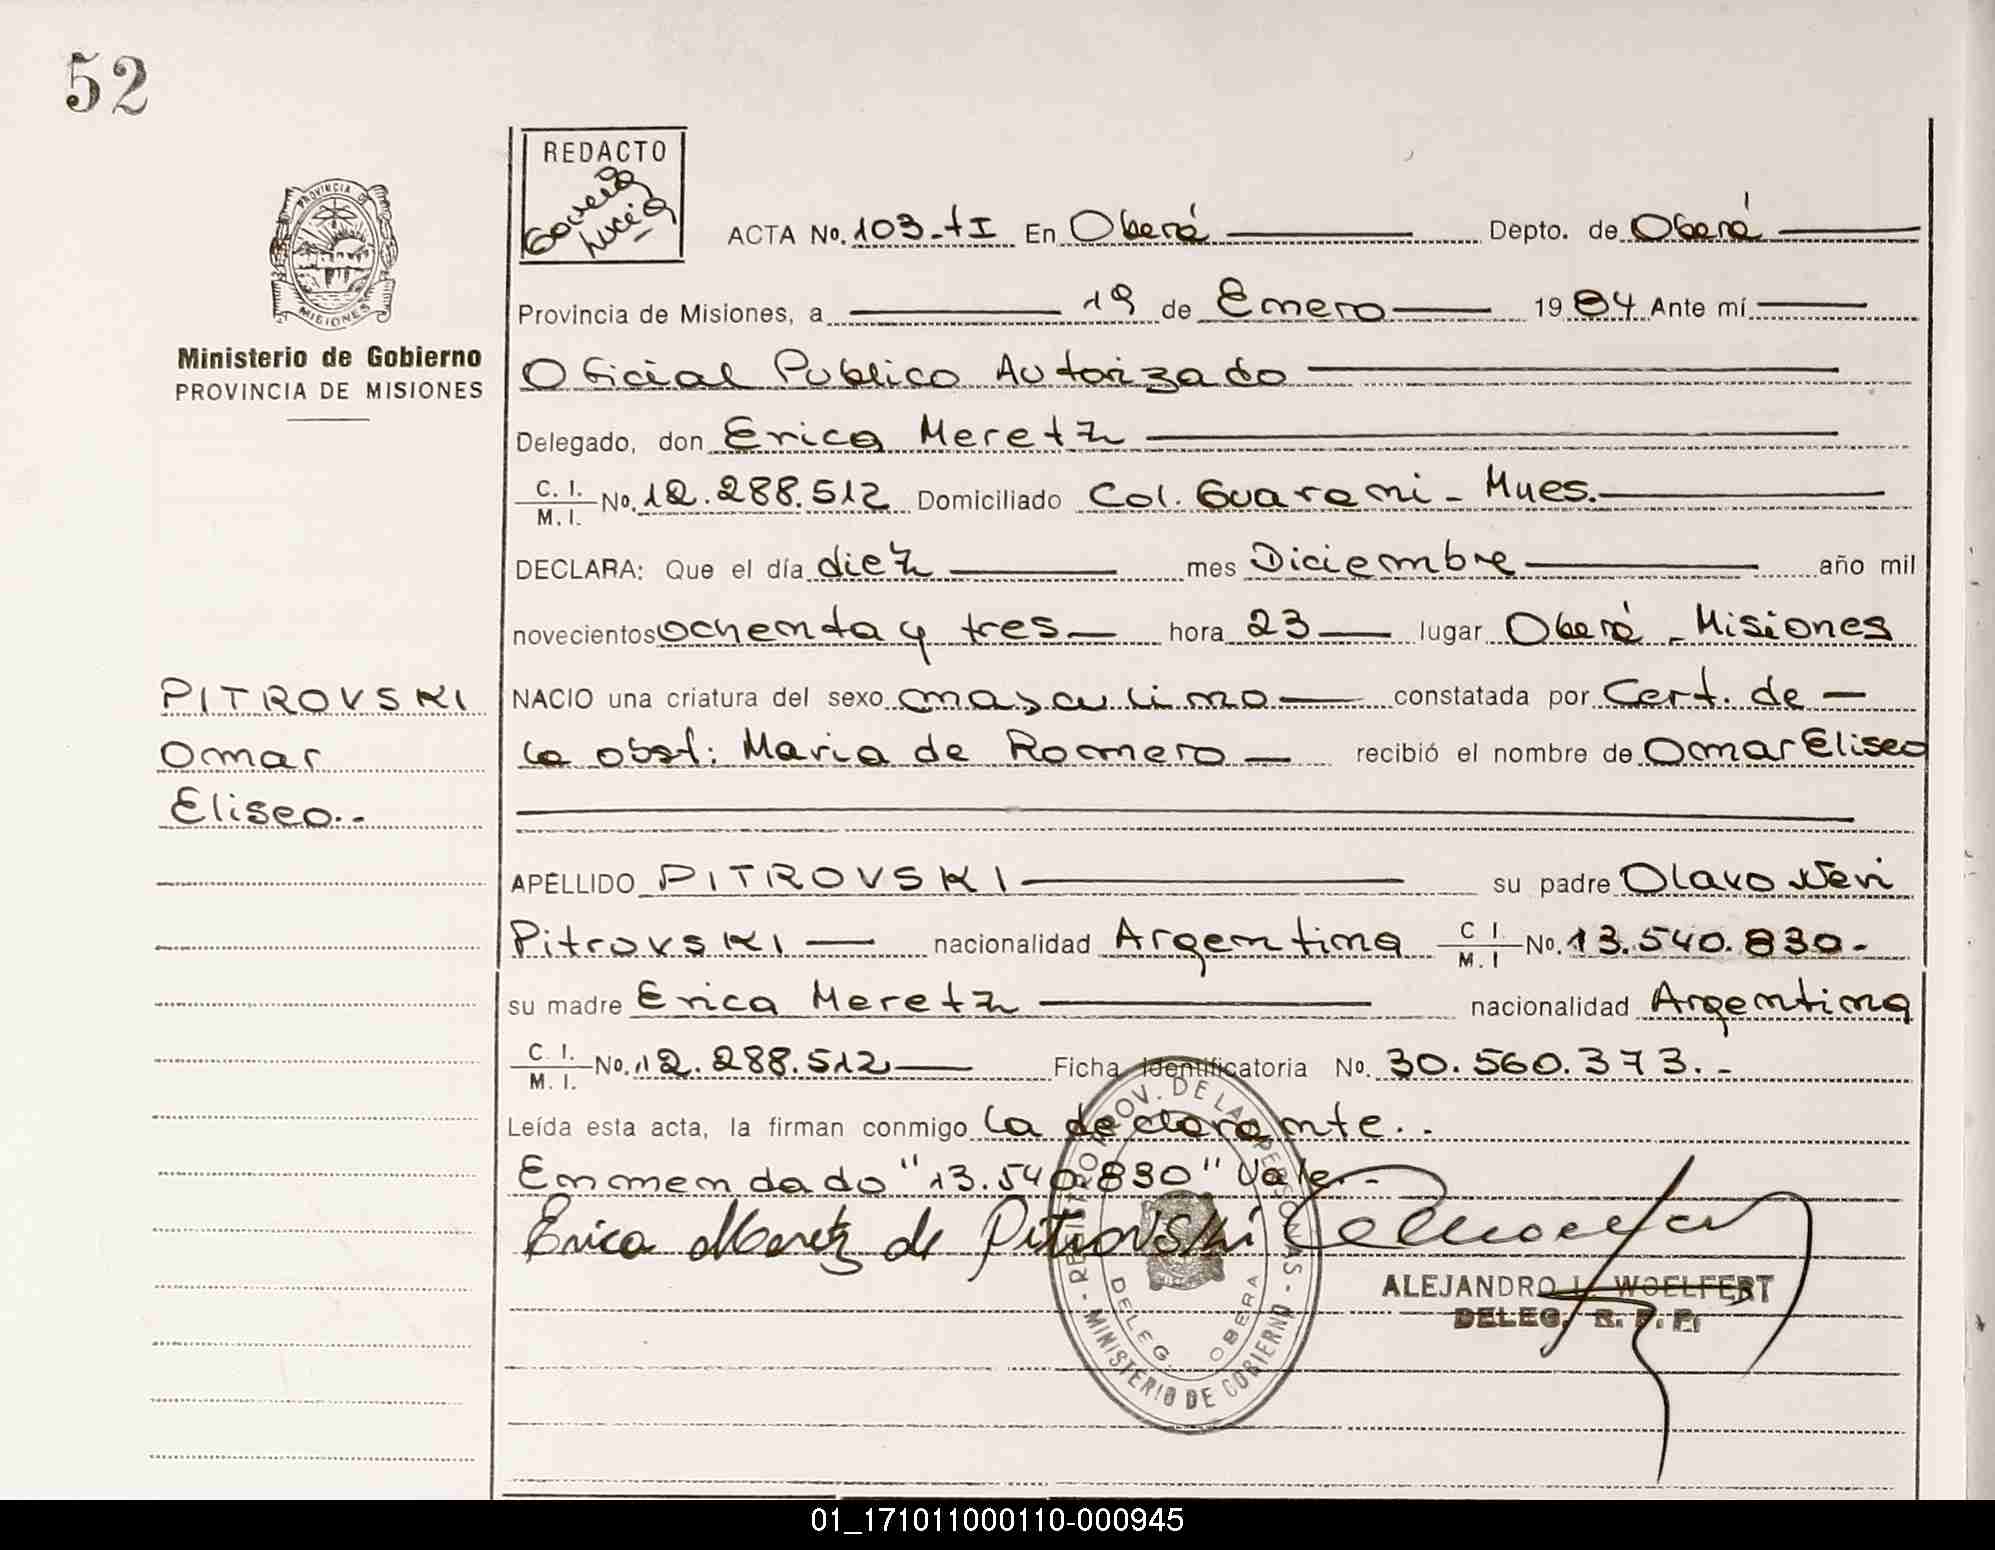 52
REDACTO
PROVINCIA DE
MISIONES
Ministerio de Gobierno
PROVINCIA DE MISIONES
ACTA No. 103-tI En Oberá Depto. de Oberá
Provincia de Misiones, a 19 de Enero 1984 Ante mí
Oficial Publico Autorizado
Delegado, don Erica Meretz
C. I. / M. I. No. 12.288.512 Domiciliado Col. Guarani - Mnes.
DECLARA: Que el día diez mes Diciembre año mil
novecientos ochenta y tres hora 23 lugar Oberá - Misiones
NACIO una criatura del sexo masculino constatada por Cert. de
la obst: Maria de Romero recibió el nombre de Omar Eliseo
PITROVSKI
Omar
Eliseo.-
APELLIDO PITROVSKI su padre Olavo Nevi
Pitrovski nacionalidad Argentina C I. / M. I No. 13.540.830.-
su madre Erica Meretz nacionalidad Argentina
C. I. / M. I. No. 12.288.512 Ficha Identificatoria No. 30.560.373.-
Leída esta acta, la firman conmigo la declarante.-
Enmendado "13.540.830" Vale.-
Erica Meretz de Pitrovski
ALEJANDRO L. WOELFERT
DELEG. R. P. P.
REGISTRO PROV. DE LAS PERSONAS
DELEG. OBERA
MINISTERIO DE GOBIERNO
01_171011000110-000945